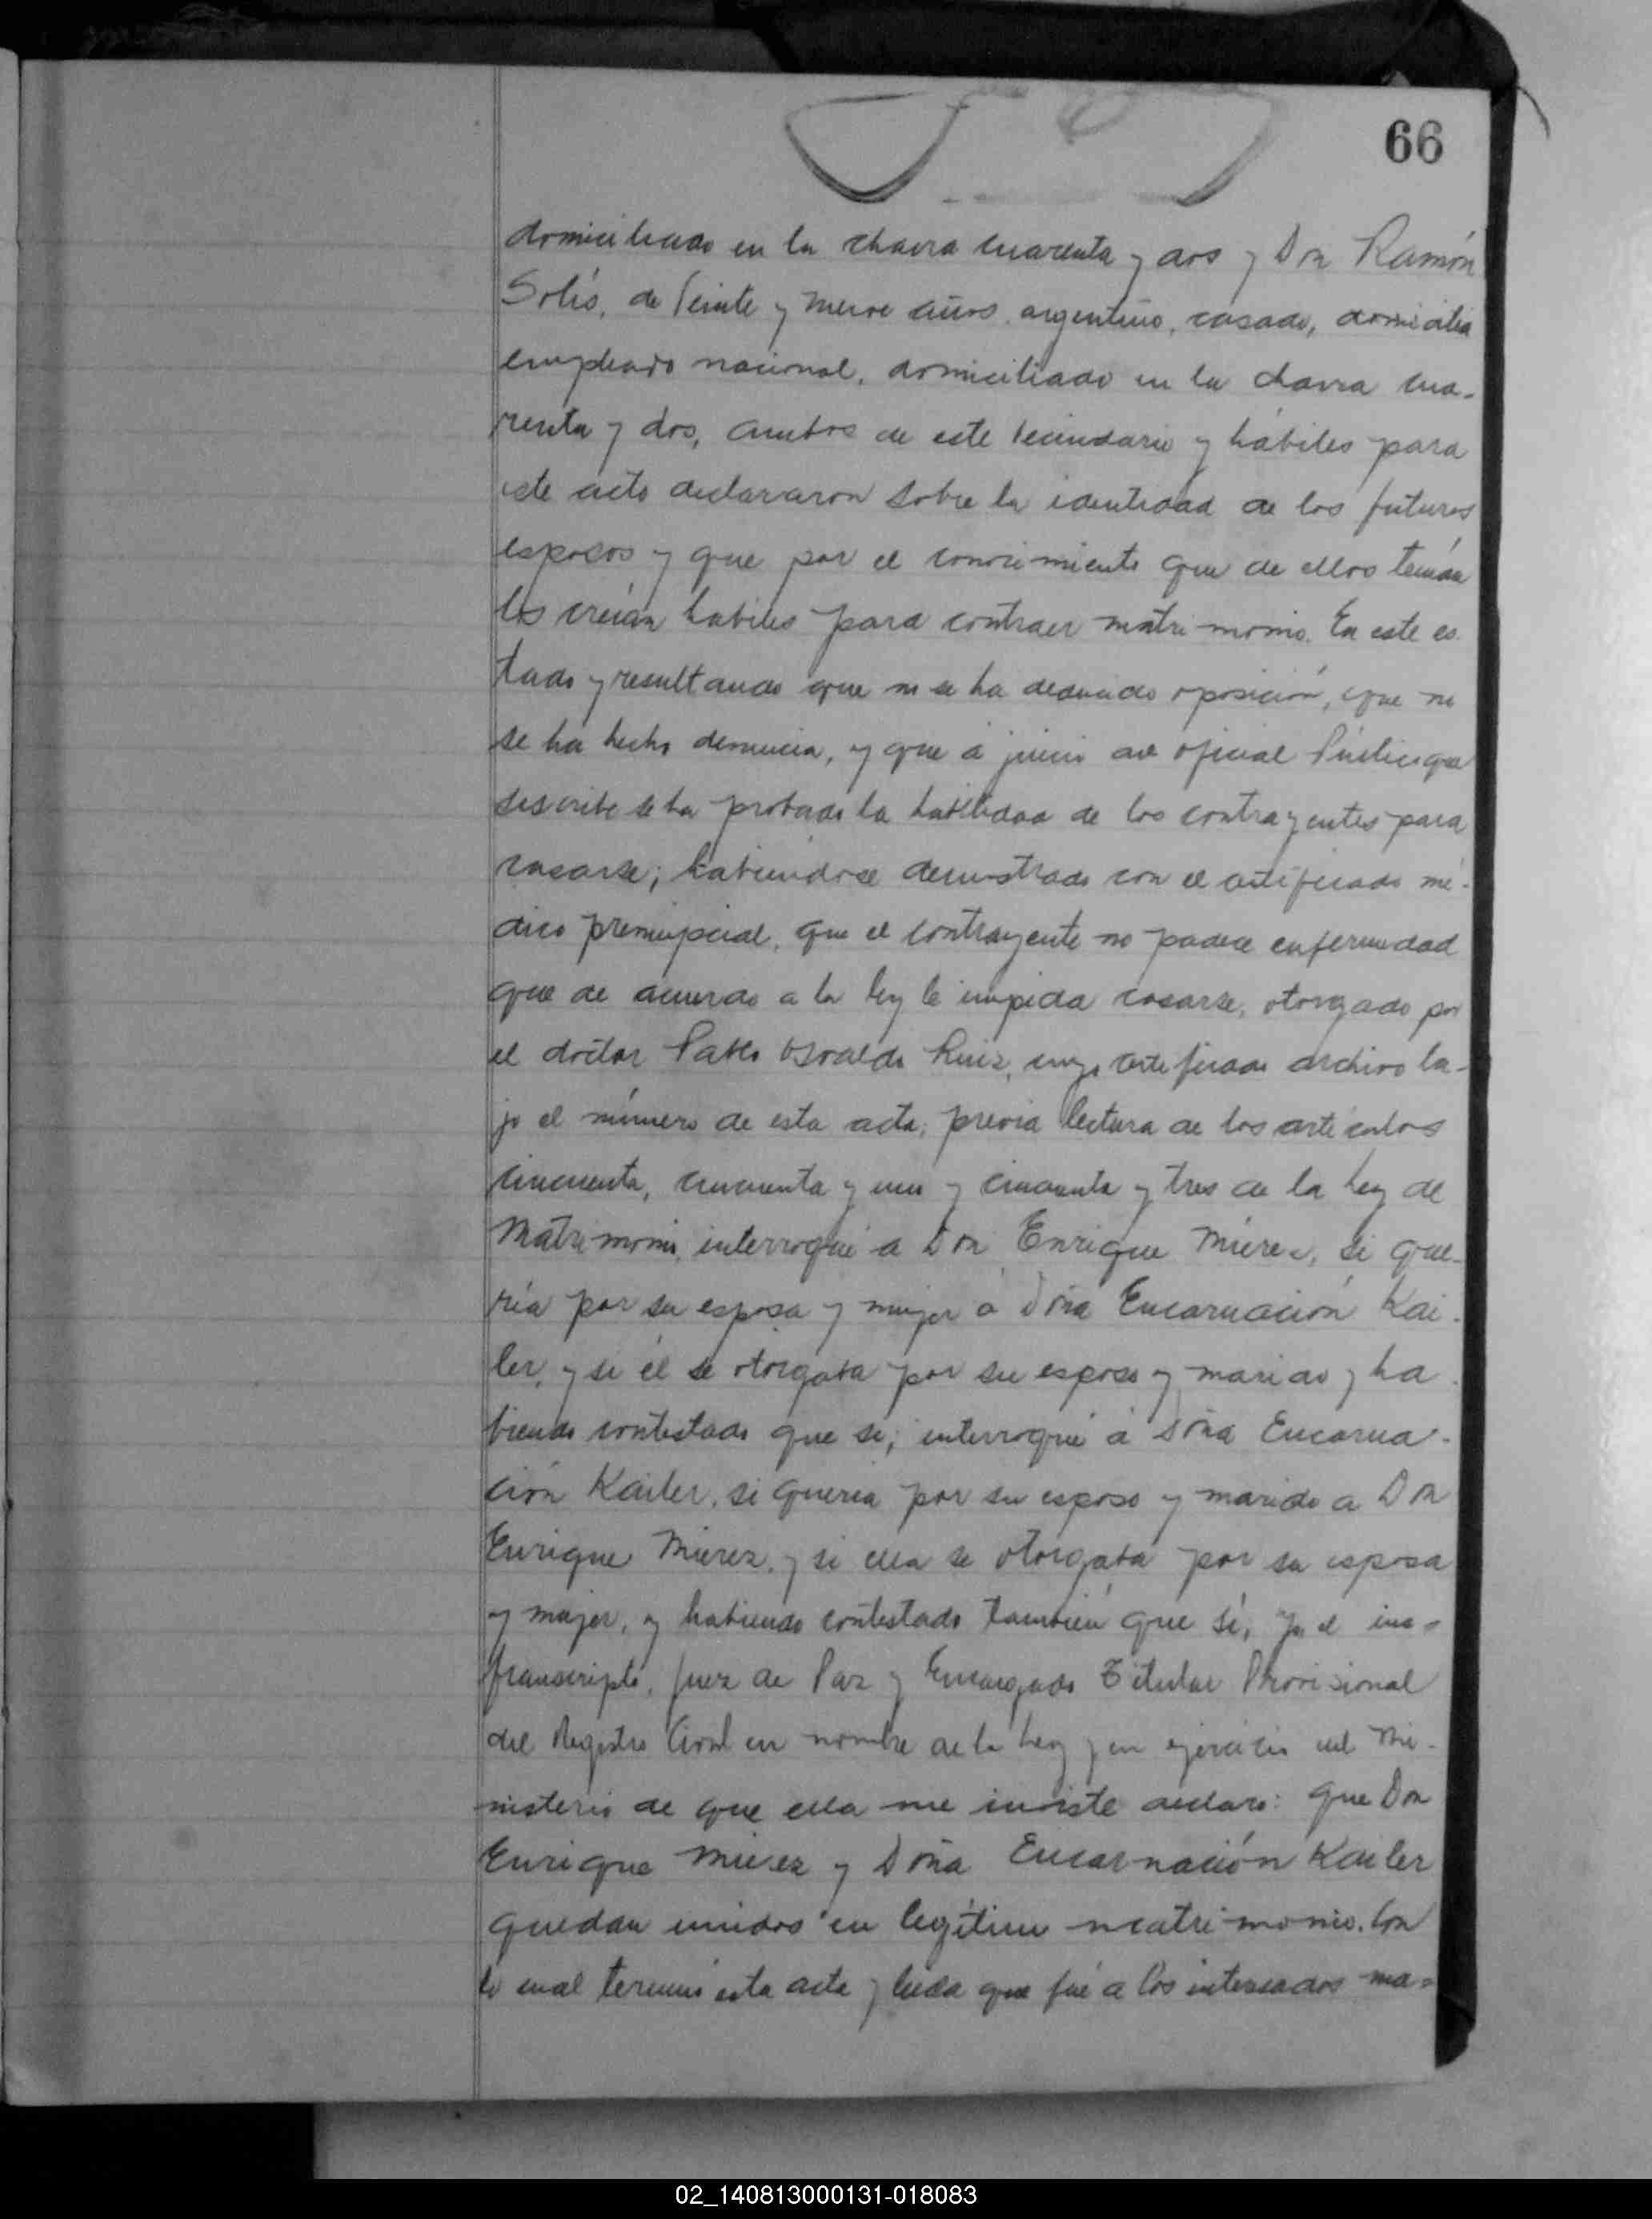 66
domiciliado en la chacra cuarenta y dos y Don Ramón
Solís, de veinte y nueve años, argentino, casado, domicilia
empleado nacional, domiciliado en la chacra cua-
renta y dos, ambos de este vecindario y hábiles para
este acto declararon sobre la identidad de los futuros
esposos y que por el conocimiento que de ellos tenían
los creían habiles para contraer matrimonio. En este es
tado y resultando que no se ha deducido oposición, que no
se ha hecho denuncia, y que á juicio del oficial Público que
suscribe se ha probado la habilidad de los contrayentes para
casarse; habiéndose demostrado con el certificado mé-
dico prenupcial, que el contrayente no padece enfermedad
que de acuerdo a la ley le impida casarse, otorgado por
el doctor Pablo Osvaldo Ruiz, cuyo certificado archivo ba-
jo el número de esta acta; previa lectura de los artículos
cincuenta, cincuenta y uno y cincuenta y tres de la Ley de
Matrimonio, interrogué a Don Enrique Mierez, si que-
ría por su esposa y mujer á Doña Encarnación Kai-
ler, y si él se otorgaba por su esposo y marido y ha-
biendo contestado que sí; interrogué á Doña Encarna-
ción Kailer, si quería por su esposo y marido a Don
Enrique Mierez, y si ella se otorgaba por su esposa
y mujer, y habiendo contestado también que sí, yo el in-
franscripto, Juez de Paz y Encargado Titular Provisional
del Registro Civil en nombre de la Ley y en ejercicio del Mi-
nisterio de que ella me inviste declaro: que Don
Enrique Mierez y Doña Encarnación Kailer
quedan unidos en legítimo matrimonio. Con
lo cual terminó esta acta y leída que fué a los interesados ma=
02_140813000131-018083